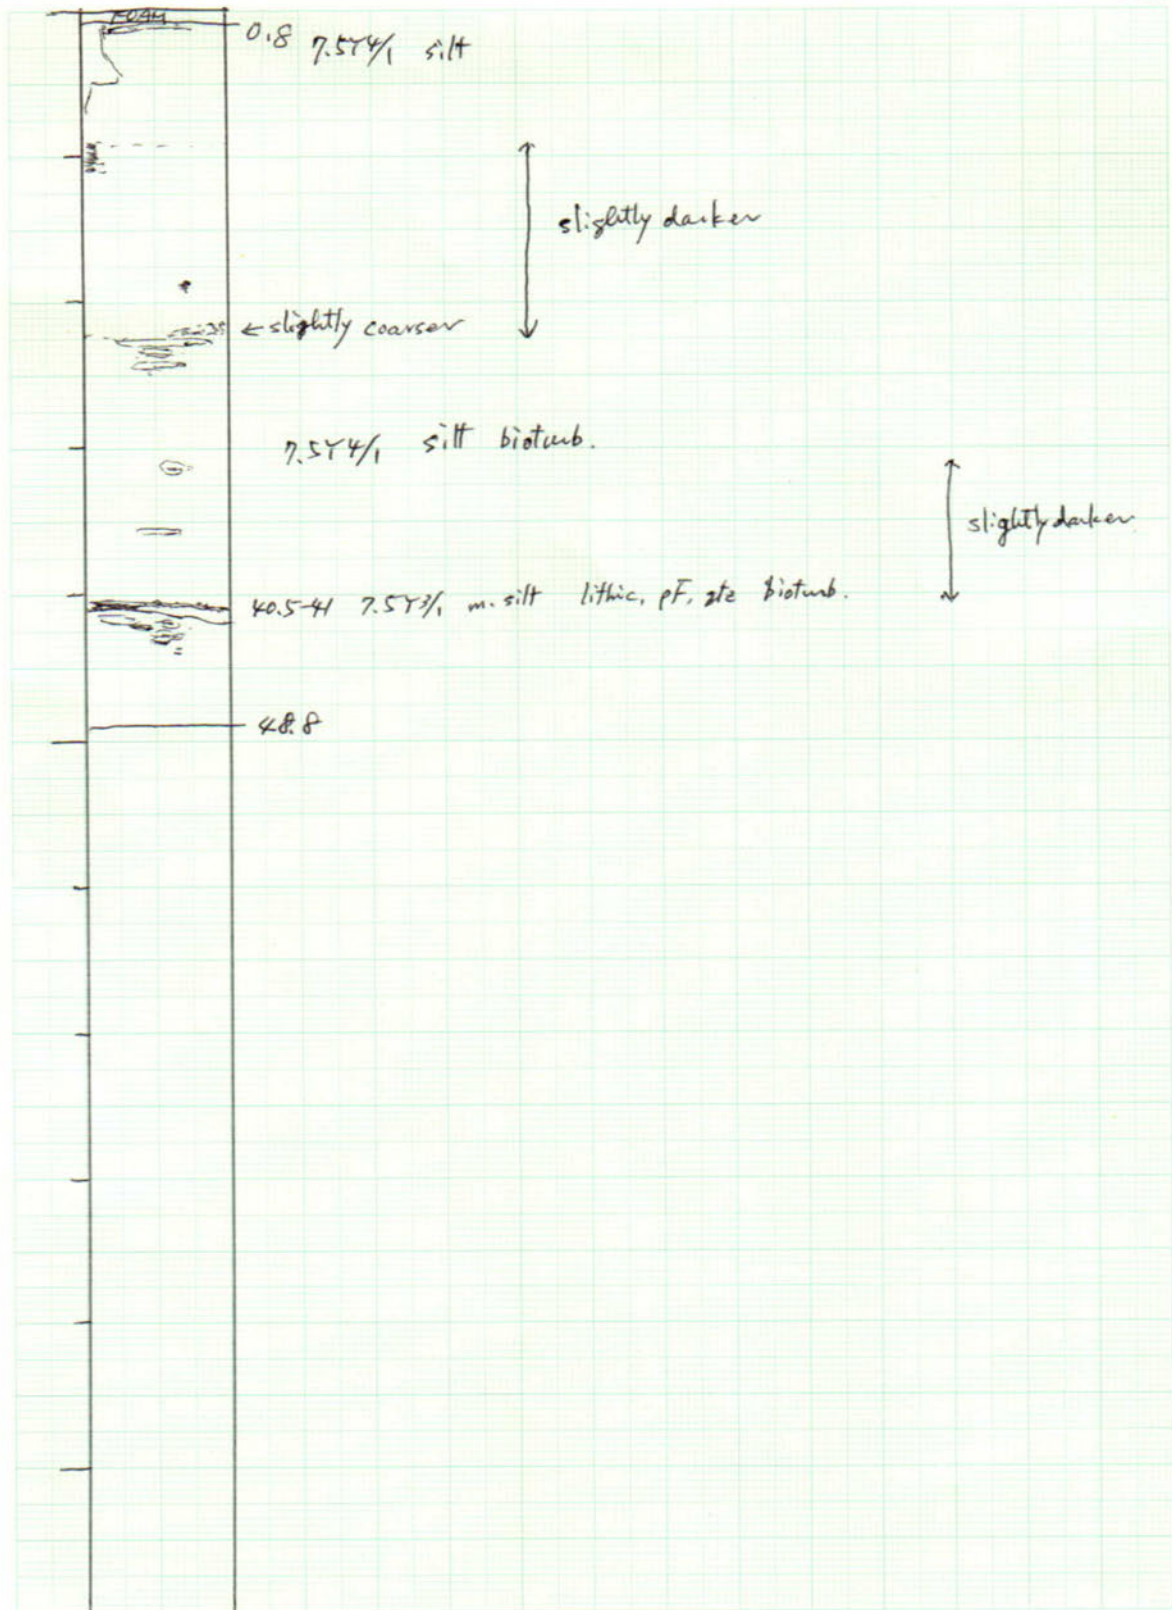 FOAM
0.8 7.5Y4/1 silt
slightly darker
← slightly coarser
7.5Y4/1 silt bioturb.
slightly darker
40.5-41 7.5Y3/1 m. silt lithic, pF, qtz bioturb.
48.8